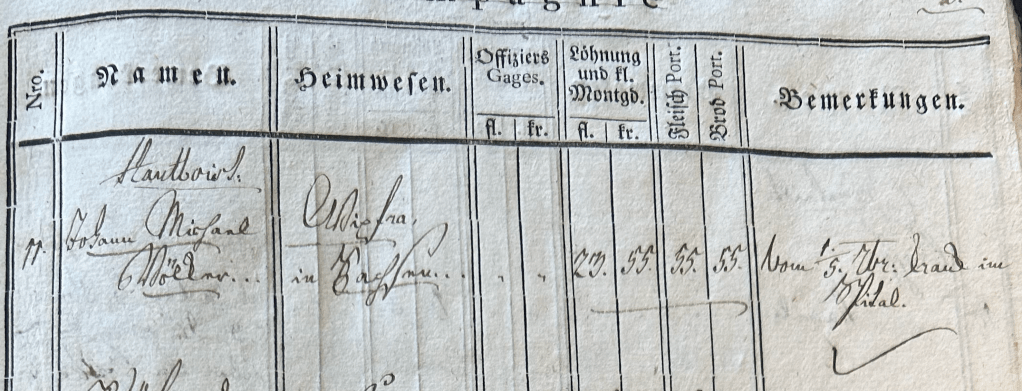 Nro.
Namen.
Heimwesen.
Offiziers
Gages.
fl. kr.
Löhnung
und kl.
Montgd.
fl. kr.
Fleisch Port.
Brod Port.
Bemerkungen.
Hautboist.
11. Johann Michael
Völker...
Wipfra,
in Sachsen...
23. 55. 55. 55.
Vom 1/5. 7br: krank im
Spital.